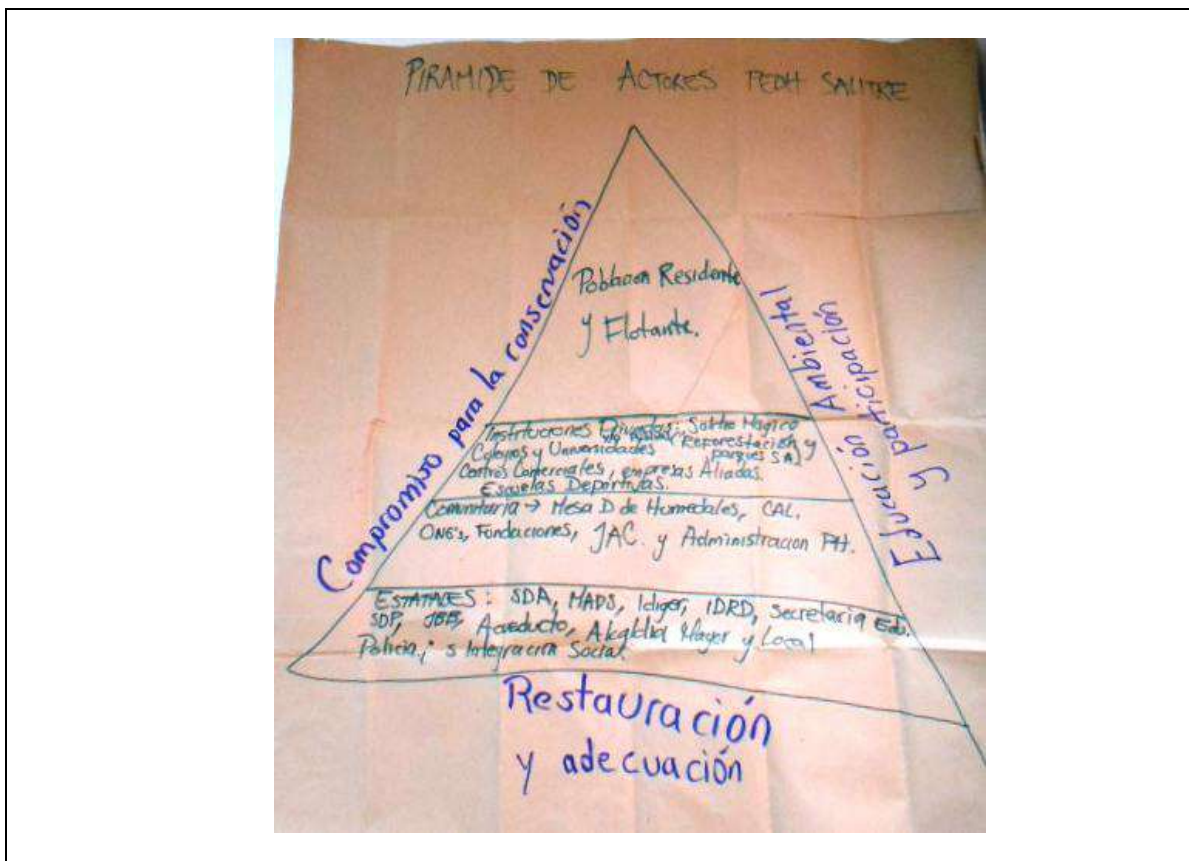 PIRAMIDE DE ACTORES PEDH SALITRE
Compromiso para la conservación
Poblacion Residente
y Flotante.
Educación Ambiental
y participación
Instituciones Privadas: Salitre Magico
Colegios y Universidades (Reforestación y
parques S.A)
Centros Comerciales, empresas Aliadas.
Escuelas Deportivas.
Comunitaria → Mesa D de Humedales, CAL.
ONG's, Fundaciones, JAC. y Administracion PH.
ESTATALES: SDA, MADS, Idiger, IDRD, Secretaria Edu.
SDP, JBB, Acueducto, Alcaldia Mayor y Local
Policia, s Integración Social.
Restauración
y adecuación